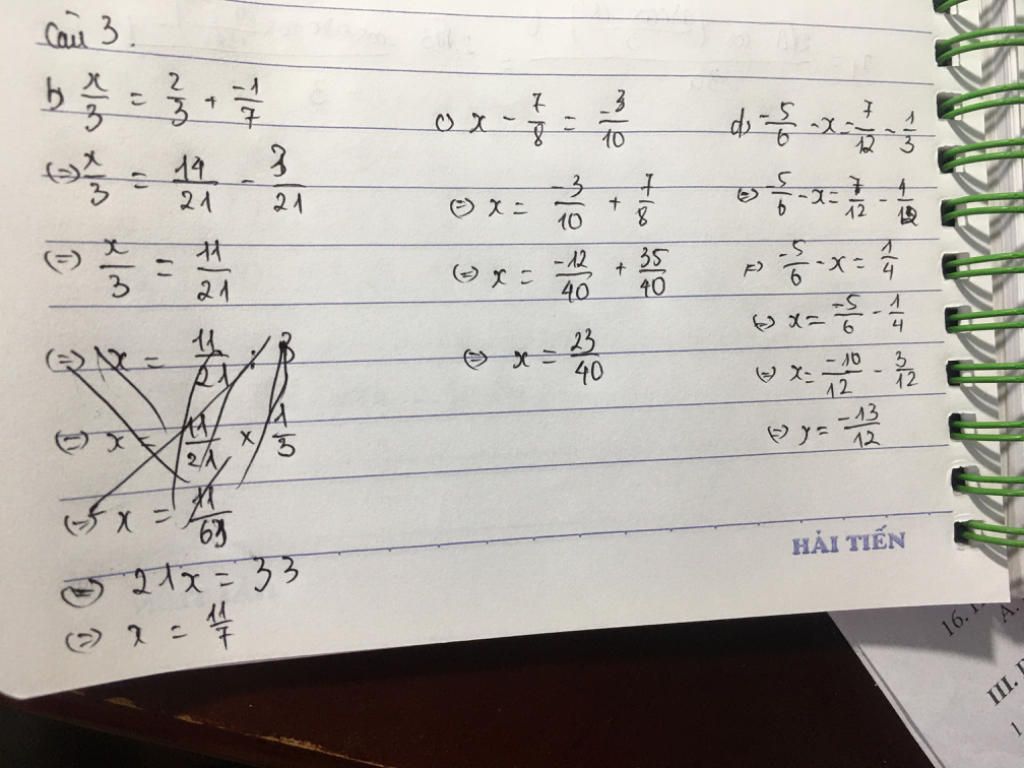 Câu 3.
b) x/3 = 2/3 + -1/7
(=) x/3 = 14/21 - 3/21
(=) x/3 = 11/21
(=) x = 11/21 : 3
(=) x = 11/21 × 1/3
(=) x = 11/63
(=) 21x = 33
(=) x = 11/7
c) x - 7/8 = -3/10
(=) x = -3/10 + 7/8
(=) x = -12/40 + 35/40
(=) x = 23/40
d) -5/6 - x = 7/12 - 1/3
(=) -5/6 - x = 7/12 - 4/12
(=) -5/6 - x = 1/4
(=) x = -5/6 - 1/4
(=) x = -10/12 - 3/12
(=) x = -13/12
HẢI TIẾN
16.
A.
III.
1